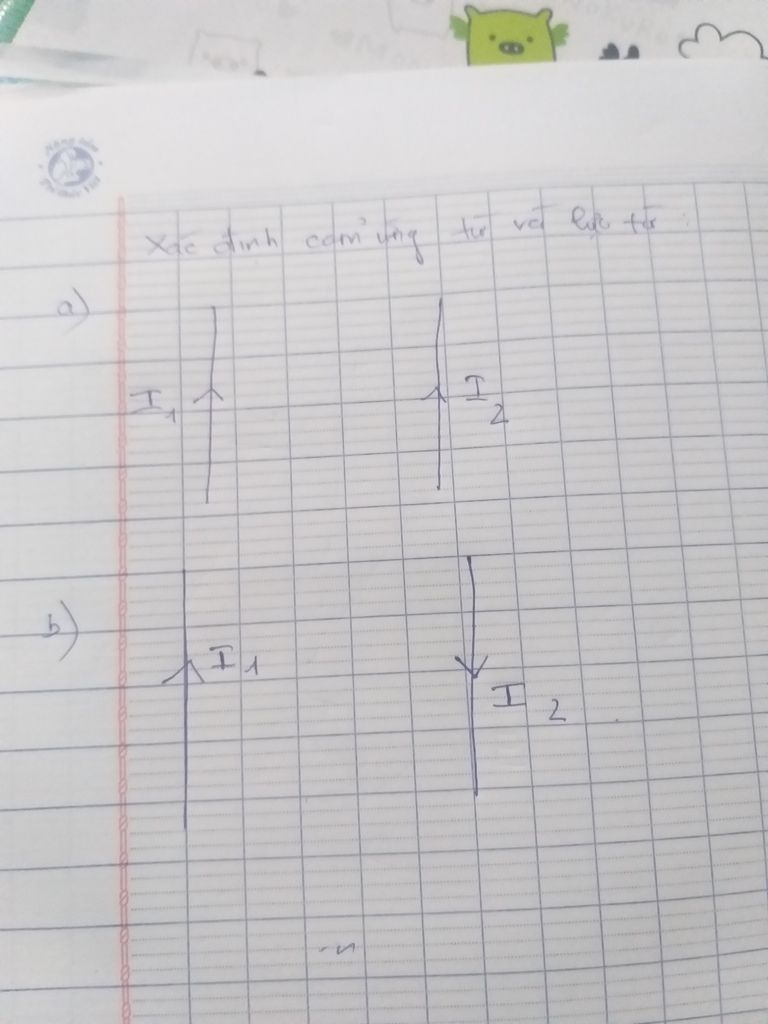 Xác định cảm ứng từ và lực từ :
a)
I₁ I₂
b)
I₁
I₂